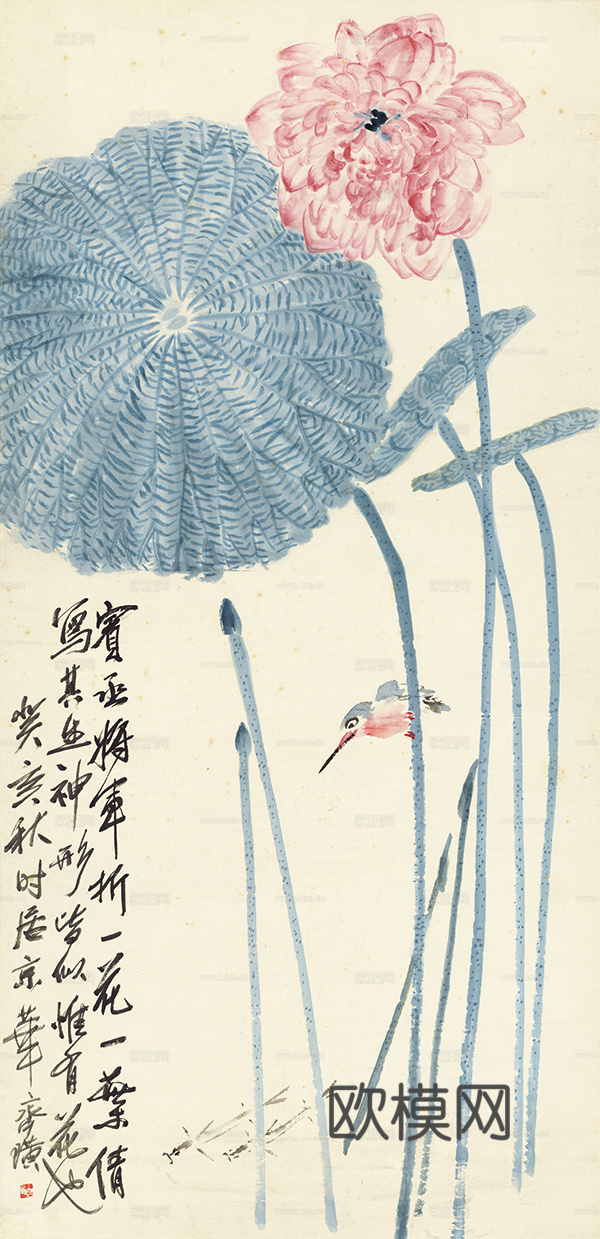 賓丞將軍折一花一葉倩
寫其生神形皆似惟有花也
癸亥秋时居京華齊璜
欧模网